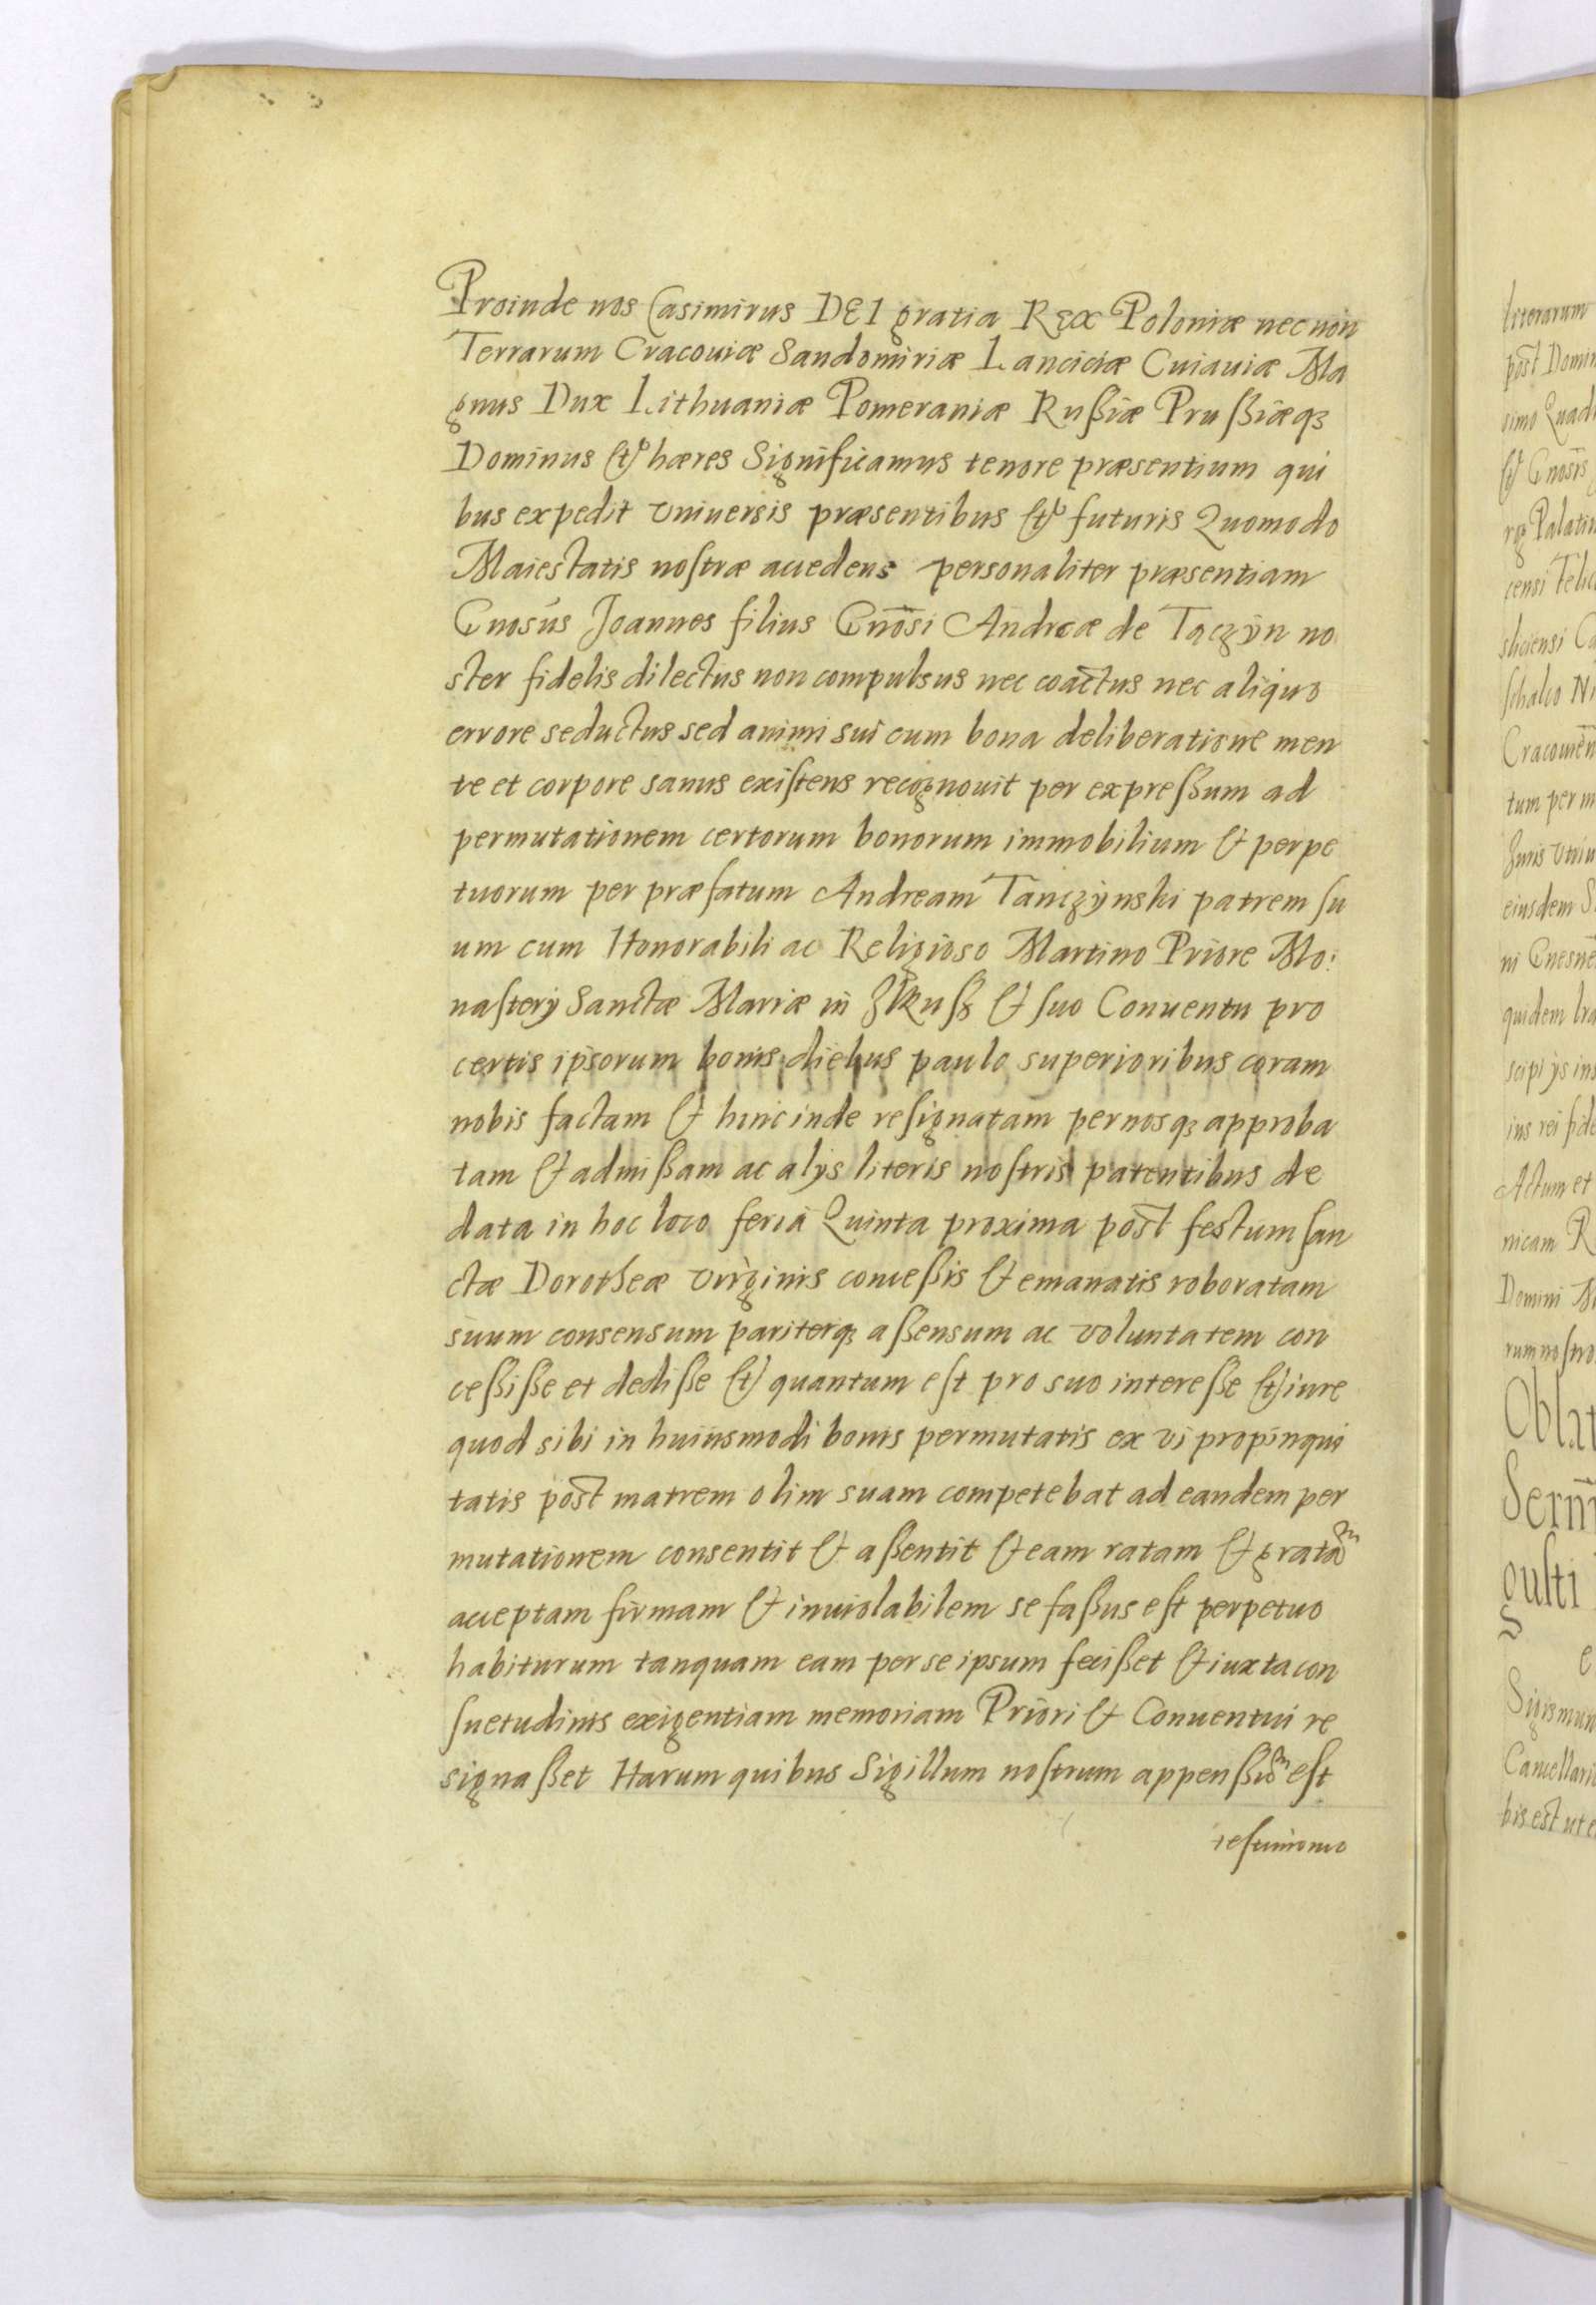 Proinde nos Casimirus DEI gratia Rex Poloniæ necnon
Terrarum Cracouiæ Sandomiriæ Lanciciæ Cuiauiæ Ma
gnus Dux Lithuaniæ Pomeraniæ Rußiæ Prußiæqȝ
Dominus et hæres Significamus tenore præsentium qui
bus expedit vniuersis præsentibus et futuris Quomodo
Maiestatis nostræ accedens personaliter præsentiam
Gnosus Joannes filius Gnōsi Andreæ de Taczÿn no
ster fidelis dilectus non compulsus nec coactus nec aliquo
errore seductus sed animi sui cum bona deliberatione men
te et corpore sanus existens recognouit per expreßum ad
permutationem certorum bonorum immobilium & perpe
tuorum per præfatum Andream Tanczÿnski patrem su
um cum Honorabili ac Religioso Martino Priore Mo:
nasterÿ Sanctæ Mariæ in & suo Conuentu pro
certis ipsorum bonis diebus paulo superioribus coram
nobis factam & hinc inde resignatam per nosqȝ approba
tam & admißam ac alÿs literis nostris patentibus de
data in hoc loco feria Quinta proxima post festum san
ctæ Dorotheæ virginis conceßis & emanatis roboratam
suum consensum pariterqȝ aßensum ac voluntatem con
ceßiße et dediße et quantum est pro suo intereße et iure
quod sibi in huiusmodi bonis permutatis ex vi propinqui
tatis post matrem olim suam competebat ad eandem per
mutationem consentit & aßentit & eam ratam & gratam
acceptam firmam & inuiolabilem se faßus est perpetuo
habiturum tanquam eam per se ipsum fecißet & iuxta con
suetudinis exigentiam memoriam Priori & Conuentui re
signaßet Harum quibus Sigillum nostrum appenßum est
testimonio
literarum
post Domin
simo Quad
et Gnosis
rqȝ Palatin
censi Felic
sliciensi Ca
schalco Ni
Cracouien
tum per m
Juris vtriu
eiusdem S
ni Gnesne
quidem lra
scipi ÿs ins
ius rei fide
Actum et
nicam R
Domini M
rum nostro
Oblat
Serni
gusti
e
Sigismun
Cancellari
bis est ut e